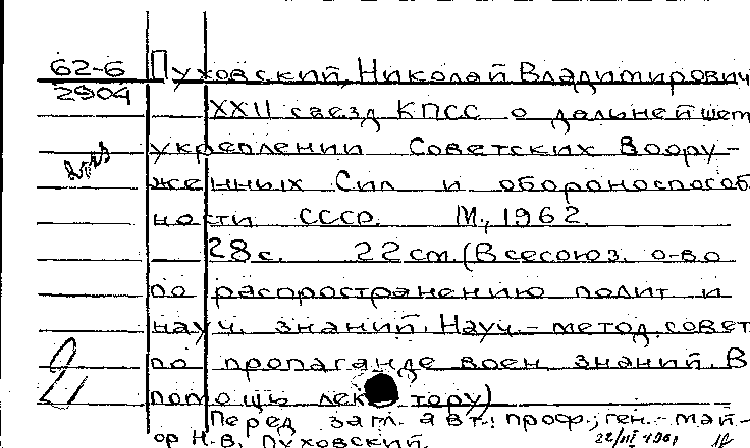 62-6
2904
Пуховский, Николай Владимирович
XXII съезд КПСС о дальнейшем
укреплении Советских Воору-
женных Сил и обороноспособ
ности СССР. М., 1962.
28 с. 22 см. (Всесоюз. о-во
по распространению полит и
науч. знаний. Науч.-метод. совет
по пропаганде воен. знаний. В
помощь лектору)
2
Перед загл. авт.: проф., ген.-май-
ор Н.В. Пуховский.